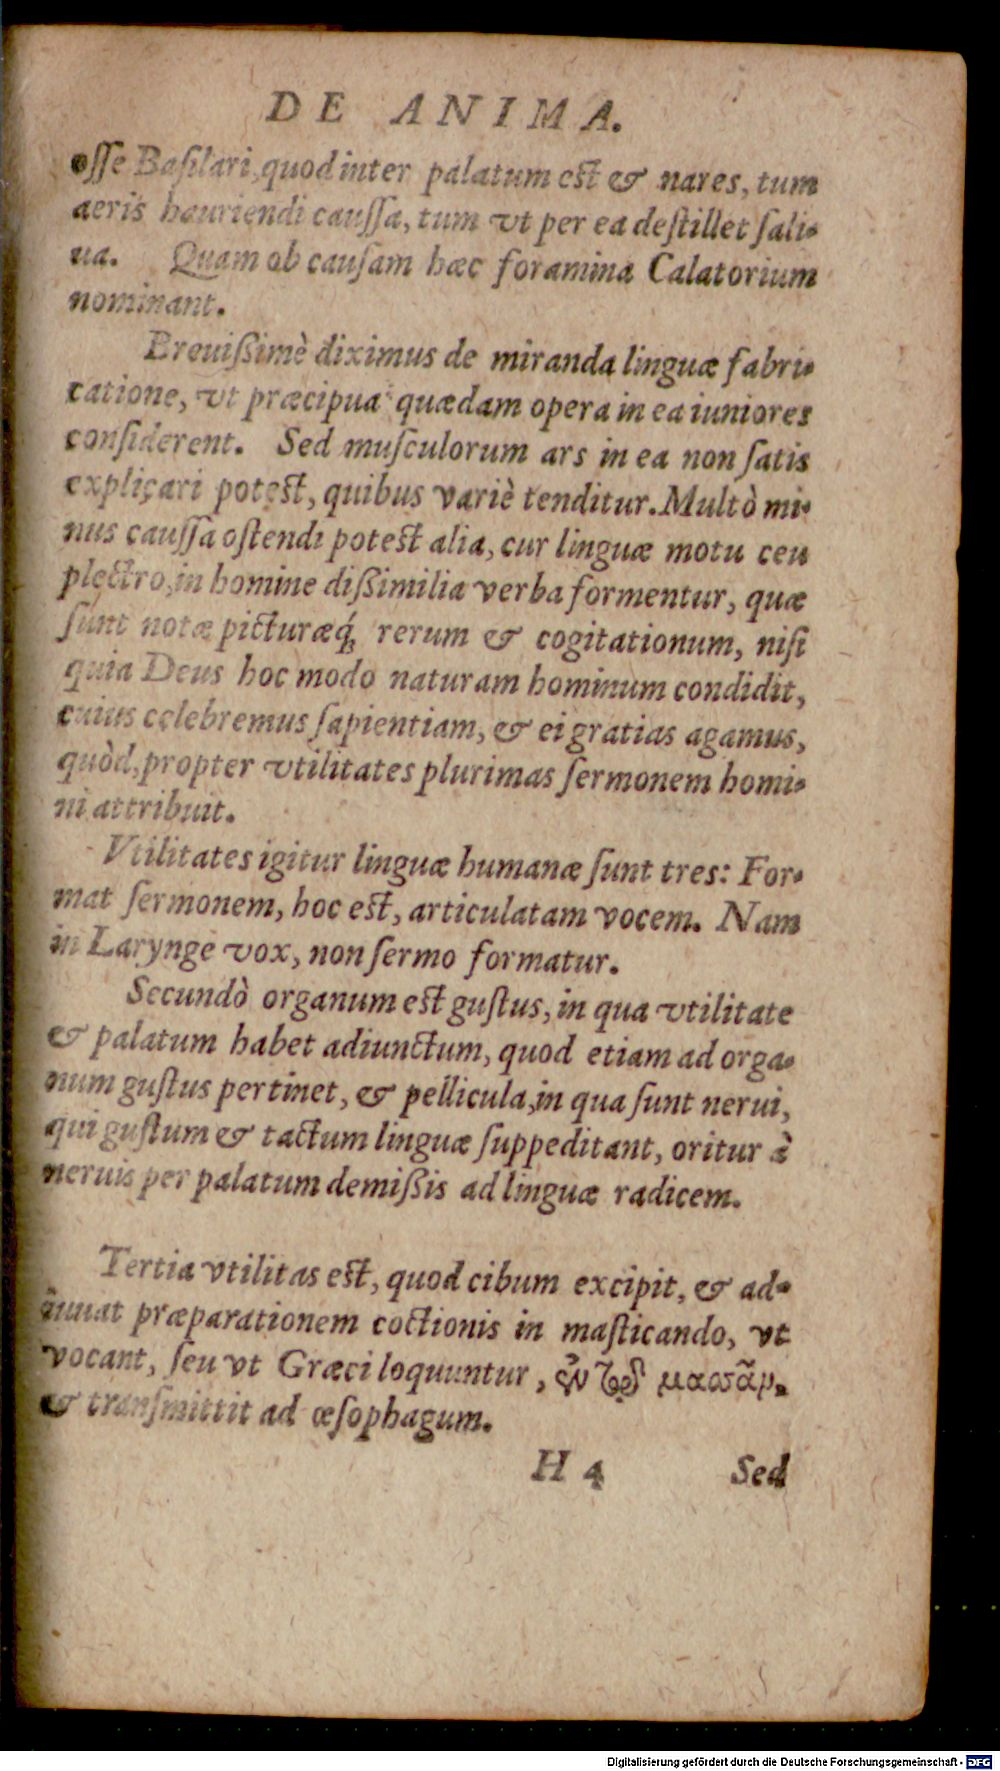 DE ANIMA.
osse Basilari, quod inter palatum est & nares, tum
aeris hauriendi caussa, tum vt per ea destillet sali-
ua. Quam ob causam hæc foramina Calatorium
nominant.
Breuißimè diximus de miranda linguæ fabri-
catione, vt præcipua quædam opera in ea iuniores
considerent. Sed musculorum ars in ea non satis
explicari potest, quibus variè tenditur. Multò mi-
nus caussa ostendi potest alia, cur linguæ motu ceu
plectro, in homine dißimilia verba formentur, quæ
sunt notæ picturæq́; rerum & cogitationum, nisi
quia Deus hoc modo naturam hominum condidit,
cuius celebremus sapientiam, & ei gratias agamus,
quòd, propter vtilitates plurimas sermonem homi-
ni attribuit.
Vtilitates igitur linguæ humanæ sunt tres: For-
mat sermonem, hoc est, articulatam vocem. Nam
in Larynge vox, non sermo formatur.
Secundò organum est gustus, in qua vtilitate
& palatum habet adiunctum, quod etiam ad orga-
num gustus pertinet, & pellicula, in qua sunt nerui,
qui gustum & tactum linguæ suppeditant, oritur à
neruis per palatum demißis ad linguæ radicem.
Tertia vtilitas est, quod cibum excipit, & ad-
iuuat præparationem coctionis in masticando, vt
vocant, seu vt Græci loquuntur,
& transmittit ad œsophagum.
H 4 Sed
Digitalisierung gefördert durch die Deutsche Forschungsgemeinschaft - DFG